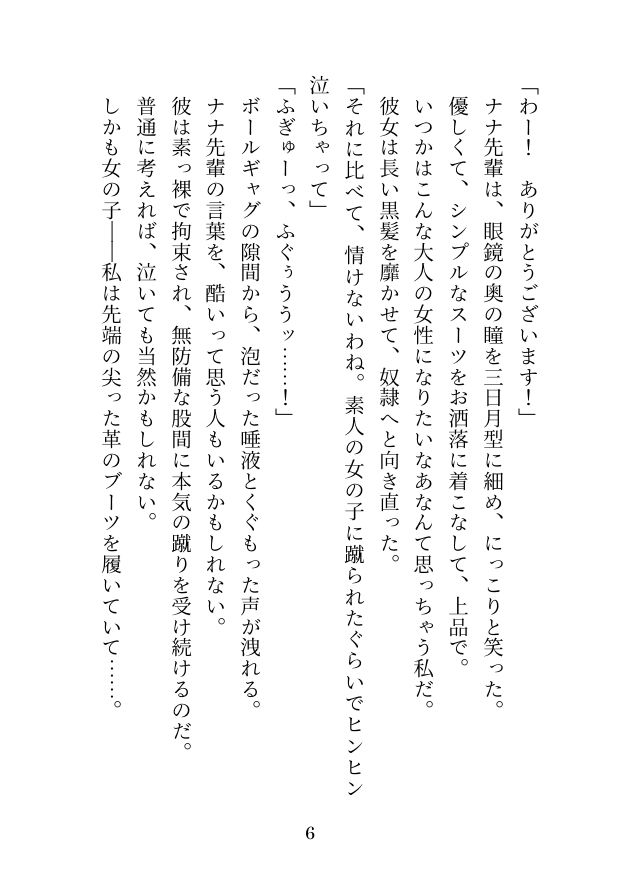 「わー！　ありがとうございます！」
ナナ先輩は、眼鏡の奥の瞳を三日月型に細め、にっこりと笑った。
優しくて、シンプルなスーツをお洒落に着こなして、上品で。
いつかはこんな大人の女性になりたいなあなんて思っちゃう私だ。
彼女は長い黒髪を靡かせて、奴隷へと向き直った。
「それに比べて、情けないわね。素人の女の子に蹴られたぐらいでヒンヒン
泣いちゃって」
「ふぎゅーっ、ふぐぅううッ……！」
ボールギャグの隙間から、泡だった唾液とくぐもった声が洩れる。
ナナ先輩の言葉を、酷いって思う人もいるかもしれない。
彼は素っ裸で拘束され、無防備な股間に本気の蹴りを受け続けるのだ。
普通に考えれば、泣いても当然かもしれない。
しかも女の子――私は先端の尖った革のブーツを履いていて……。
6